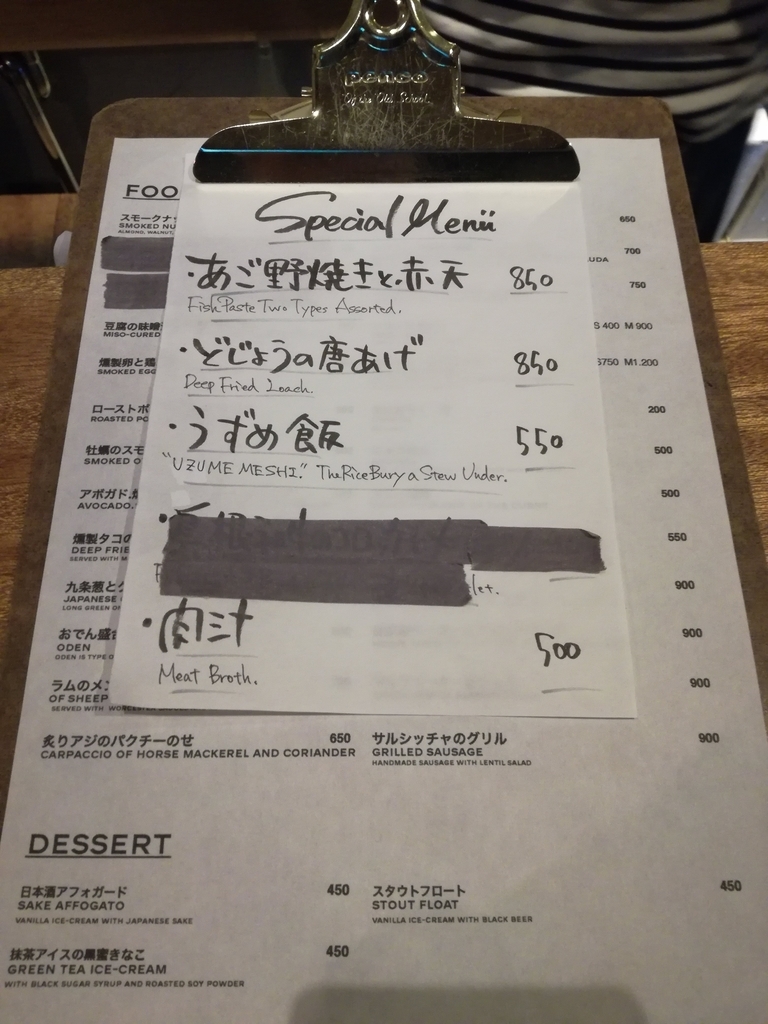 penco
Special Menu
・あご野焼きと赤天 850
Fish Paste Two Types Assorted.
・どじょうの唐あげ 850
Deep Fried Loach.
・うずめ飯 550
"UZUME MESHI." The Rice Bury a Stew Under.
let.
・肉汁 500
Meat Broth.
FOO
スモークナッ
SMOKED NU
ALMOND, WALNUT,
豆腐の味噌
MISO-CURED
燻製卵と鶏
SMOKED EGG
ローストポ
ROASTED PO
牡蠣のスモ
SMOKED O
アボガド、
AVOCADO,
燻製タコの
DEEP FRIE
SERVED WITH M
九条葱と
JAPANESE
LONG GREEN O
おでん盛
ODEN
ODEN IS TYPE O
ラムのメン
OF SHEEP
SERVED WITH
650
UDA 700
750
S 400 M 900
S750 M1.200
200
500
500
550
900
900
900
炙りアジのパクチーのせ 650
CARPACCIO OF HORSE MACKEREL AND CORIANDER
サルシッチャのグリル 900
GRILLED SAUSAGE
HANDMADE SAUSAGE WITH LENTIL SALAD
DESSERT
日本酒アフォガード 450
SAKE AFFOGATO
VANILLA ICE-CREAM WITH JAPANESE SAKE
スタウトフロート 450
STOUT FLOAT
VANILLA ICE-CREAM WITH BLACK BEER
抹茶アイスの黒蜜きなこ 450
GREEN TEA ICE-CREAM
WITH BLACK SUGAR SYRUP AND ROASTED SOY POWDER